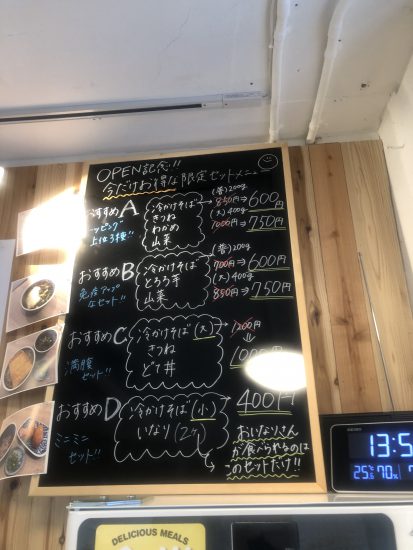 OPEN記念!!
今だけお得な限定セットメニュー
おすすめA
トッピング
上位3種!!
冷かけそば
きつね
わかめ
山菜
(普)200g
850円⇒600円
(大)400g
1000円⇒750円
おすすめB
免疫アップ
なセット!!
冷かけそば
とろろ芋
山菜
(普)200g
700円⇒600円
(大)400g
850円⇒750円
おすすめC
満腹
セット!!
冷かけそば(大)
きつね
どて丼
1200円
⇓
おすすめD
ミニミニ
セット!!
冷かけそば(小)
いなり(2ヶ
400円
おいなりさん
が食べられるのは
このセットだけ!!
SEIKO
13:5
25.
70%
DELICIOUS MEALS